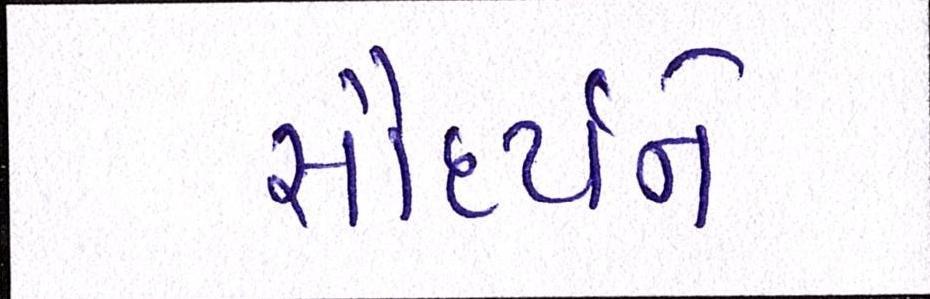 સૌદર્યને